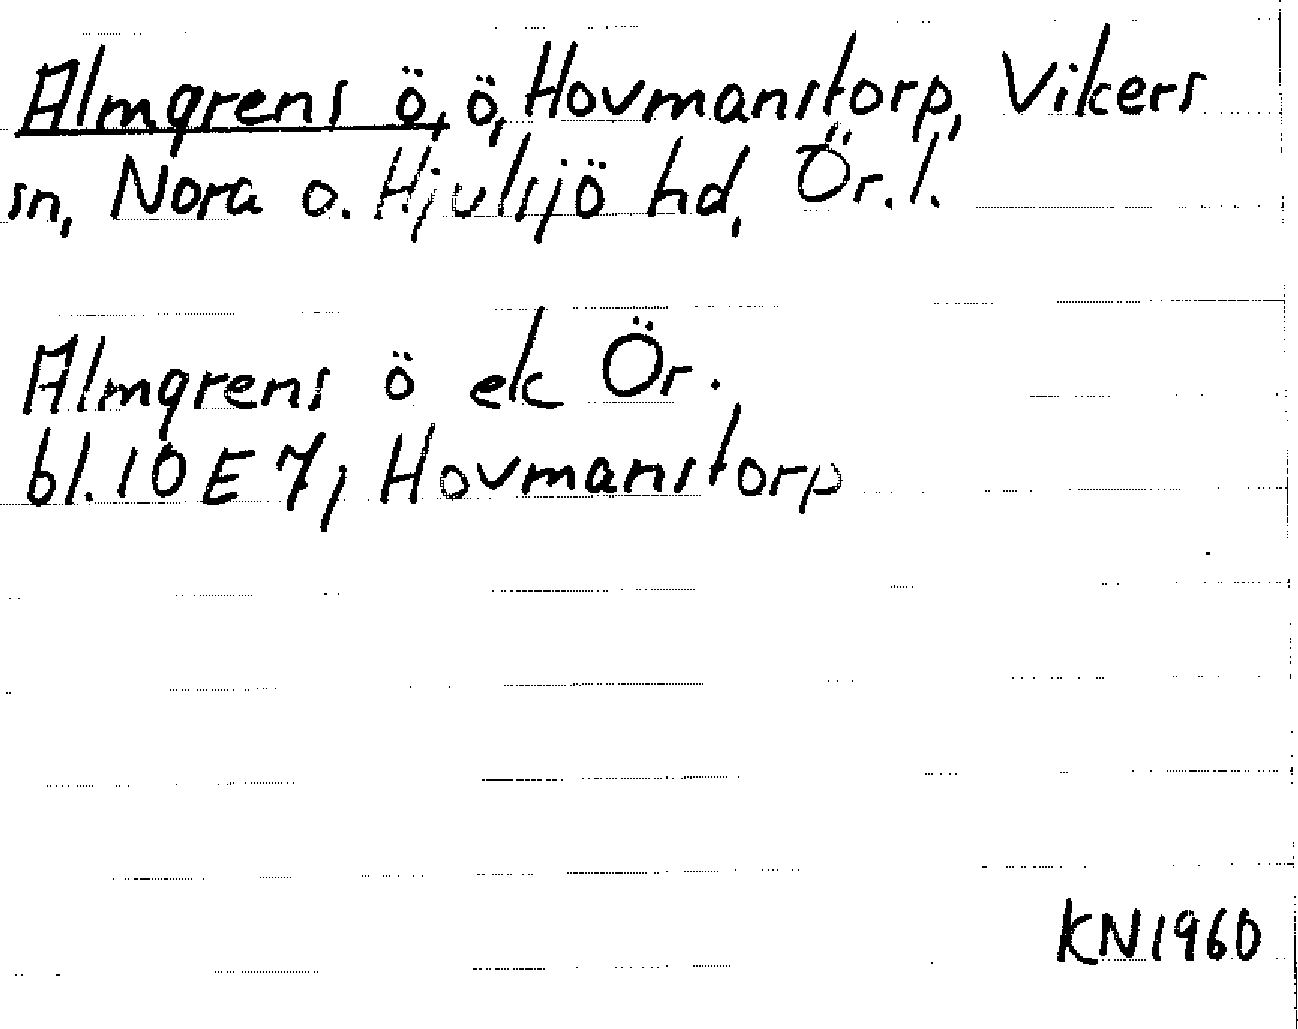 Almgrens ö, ö, Hovmanstorp, Vikers
sn, Nora o. Hjulsjö hd, Ör. l.
Almgrens ö ek Ör.
bl. 10 E 7, Hovmanstorp
KN 1960